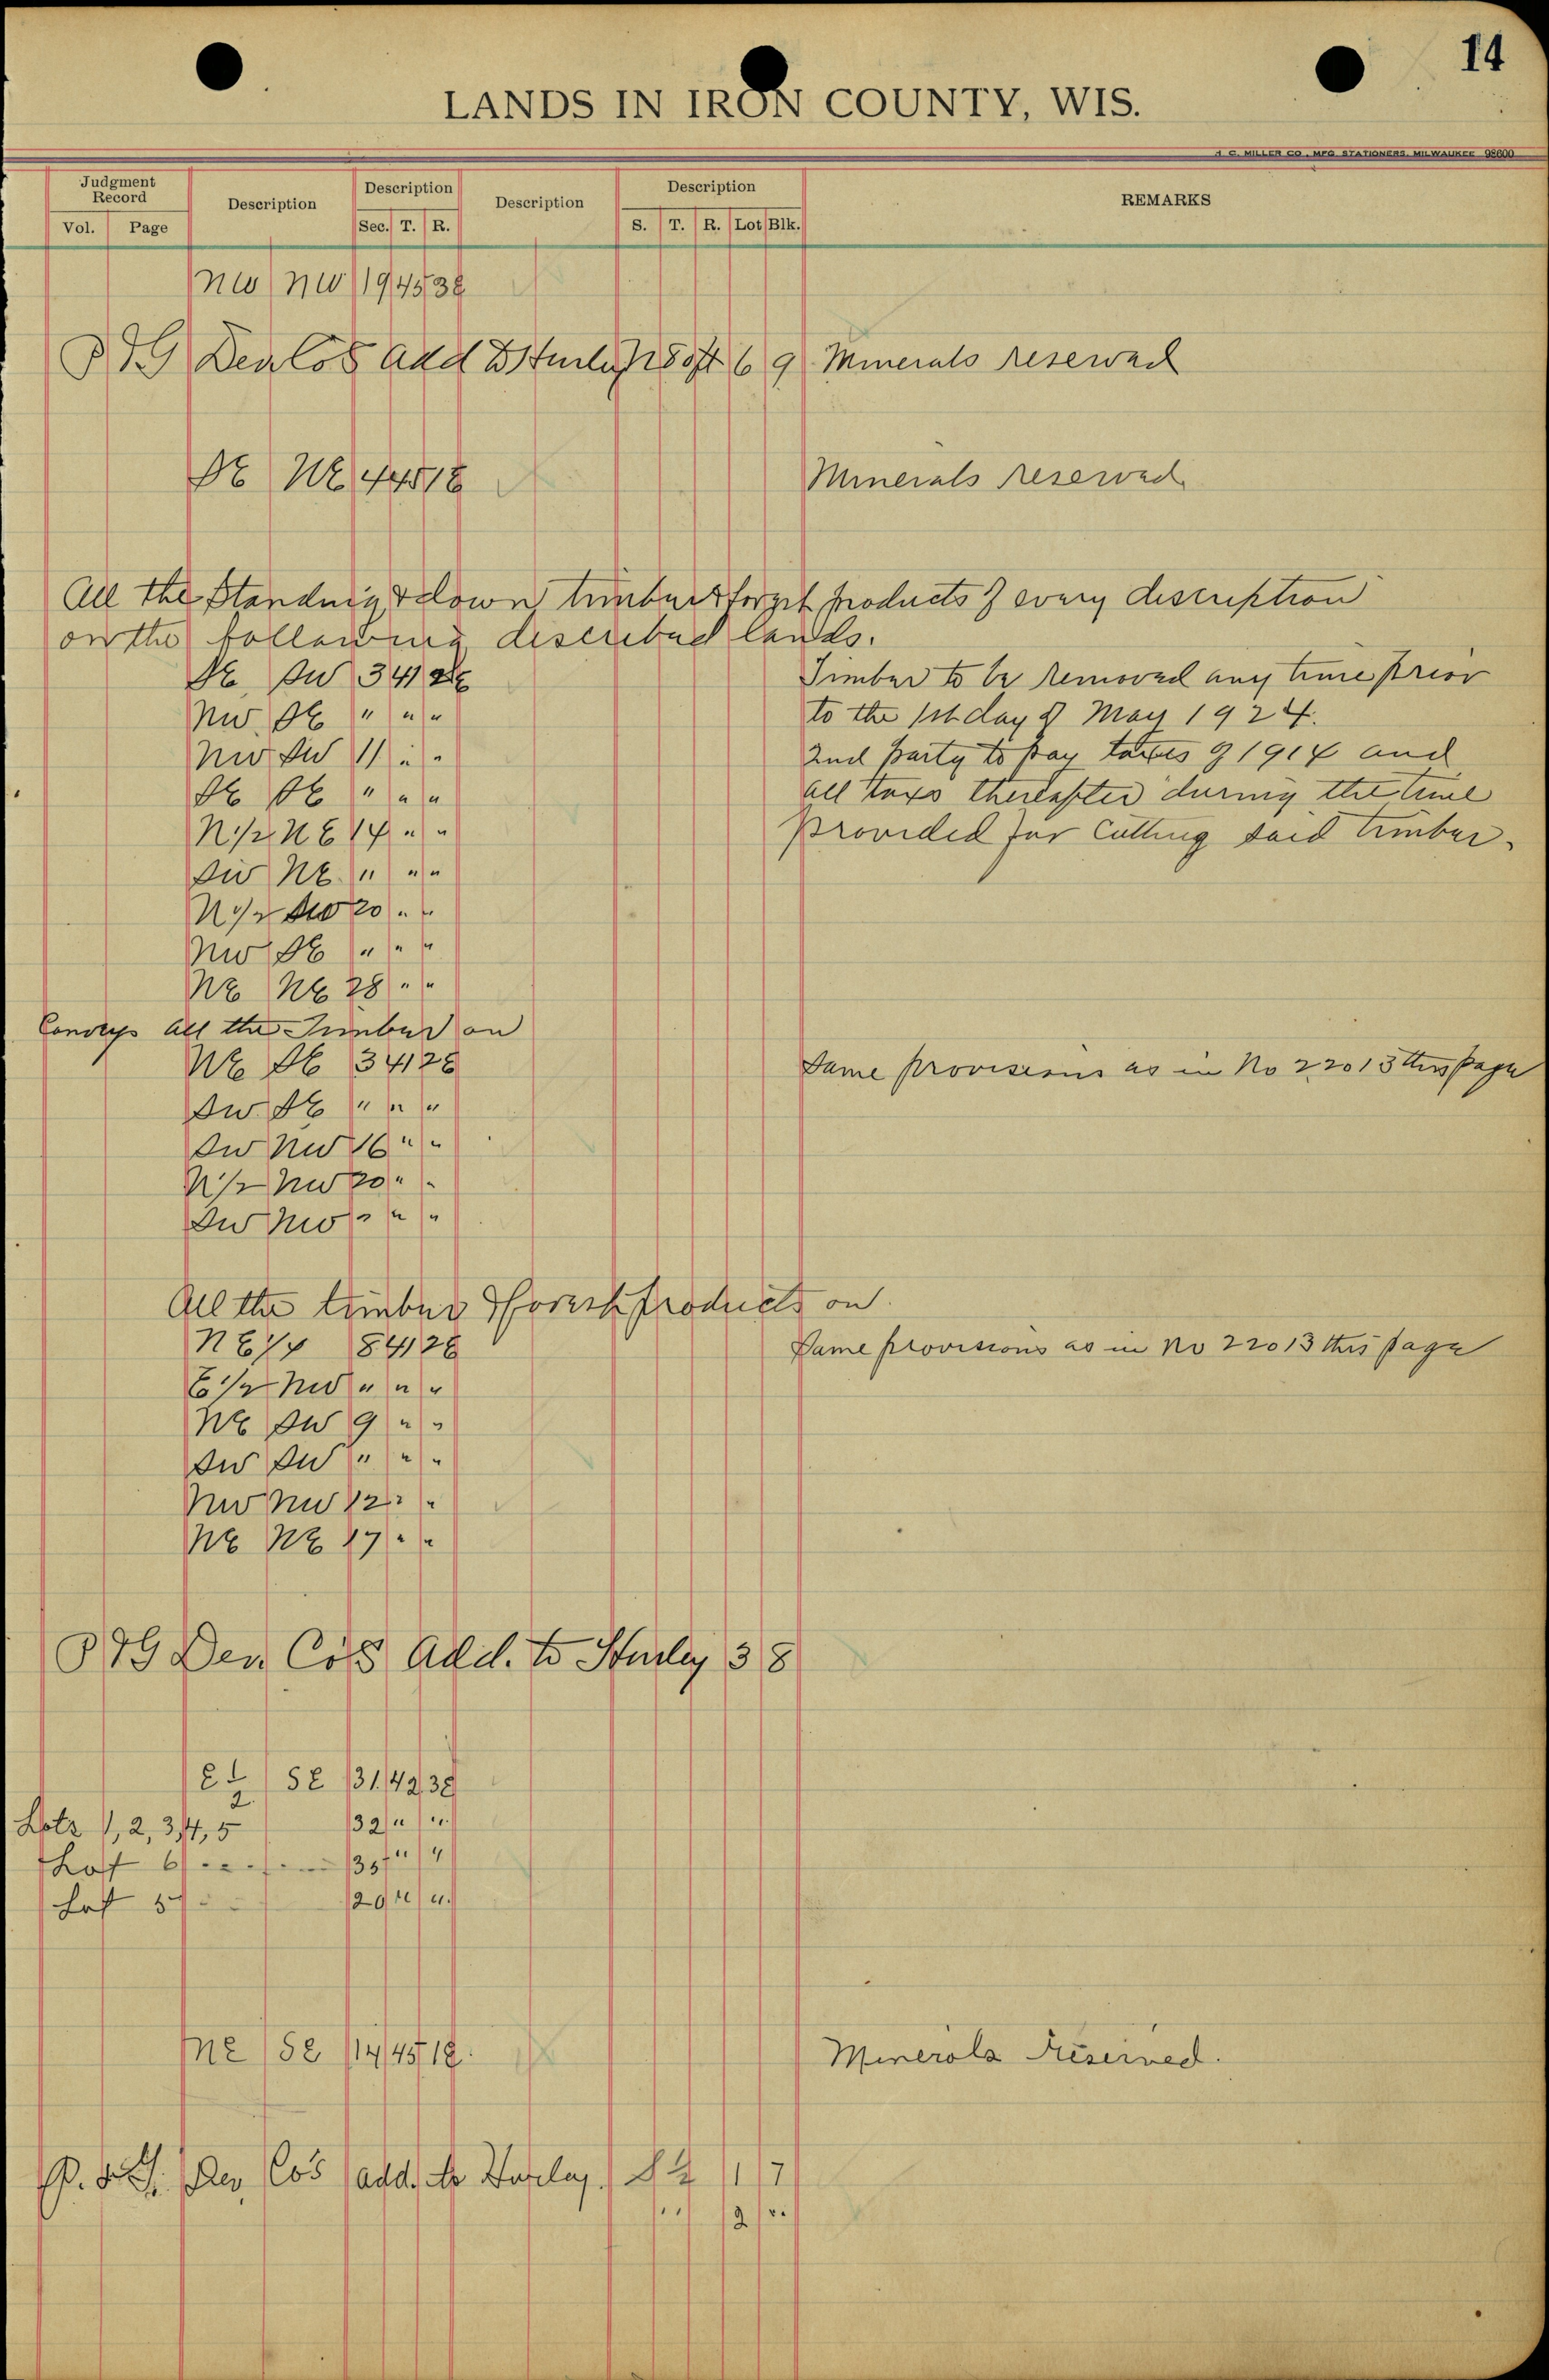 14
LANDS IN IRON COUNTY, WIS.
H. C. MILLER CO., MFG STATIONERS, MILWAUKEE 98600
Judgment Record Description Description Description Description REMARKS
Vol. Page Sec. T. R. S. T. R. Lot Blk.
NW NW 19 45 3E
P & G Dev Co's Add to Hurley 6 9 Minerals reserved
SE NE 4 45 1E Minerals reserved
All the Standing & down timber & forest products of every description
on the following described lands.
SE SW 3 41 2E Timber to be removed any time prior
NW SE " " " to the 1st day of May 1924.
NW SW 11 " " 2nd party to pay taxes of 1914 and
SE SE " " " all taxs thereafter during the time
N 1/2 NE 14 " " provided for cutting said timber.
SW NE " " "
N 1/2 SW 20 " "
NW SE " " "
NE NE 28 " "
Conveys all the Timber on
NE SE 3 41 2E Same provisions as in No 22013 this page
SW SE " " "
SW NW 16 " "
N 1/2 NW 20 " "
SW NW " " "
All the timber & forest products on
NE 1/4 8 41 2E Same provisions as in No 22013 this page
E 1/2 NW " " "
NE SW 9 " "
SW SW " " "
NW NW 12 " "
NE NE 17 " "
P & G Dev Co's Add. to Hurley 3 8
E 1/2 SE 31 42 3E
Lots 1, 2, 3, 4, 5 32 " "
Lot 6 " "
Lot 5 29 " "
NE SE 14 45 1E Minerals reserved.
P. & G. Dev Co's add. to Hurley S 1/2 1 17
" 2 "